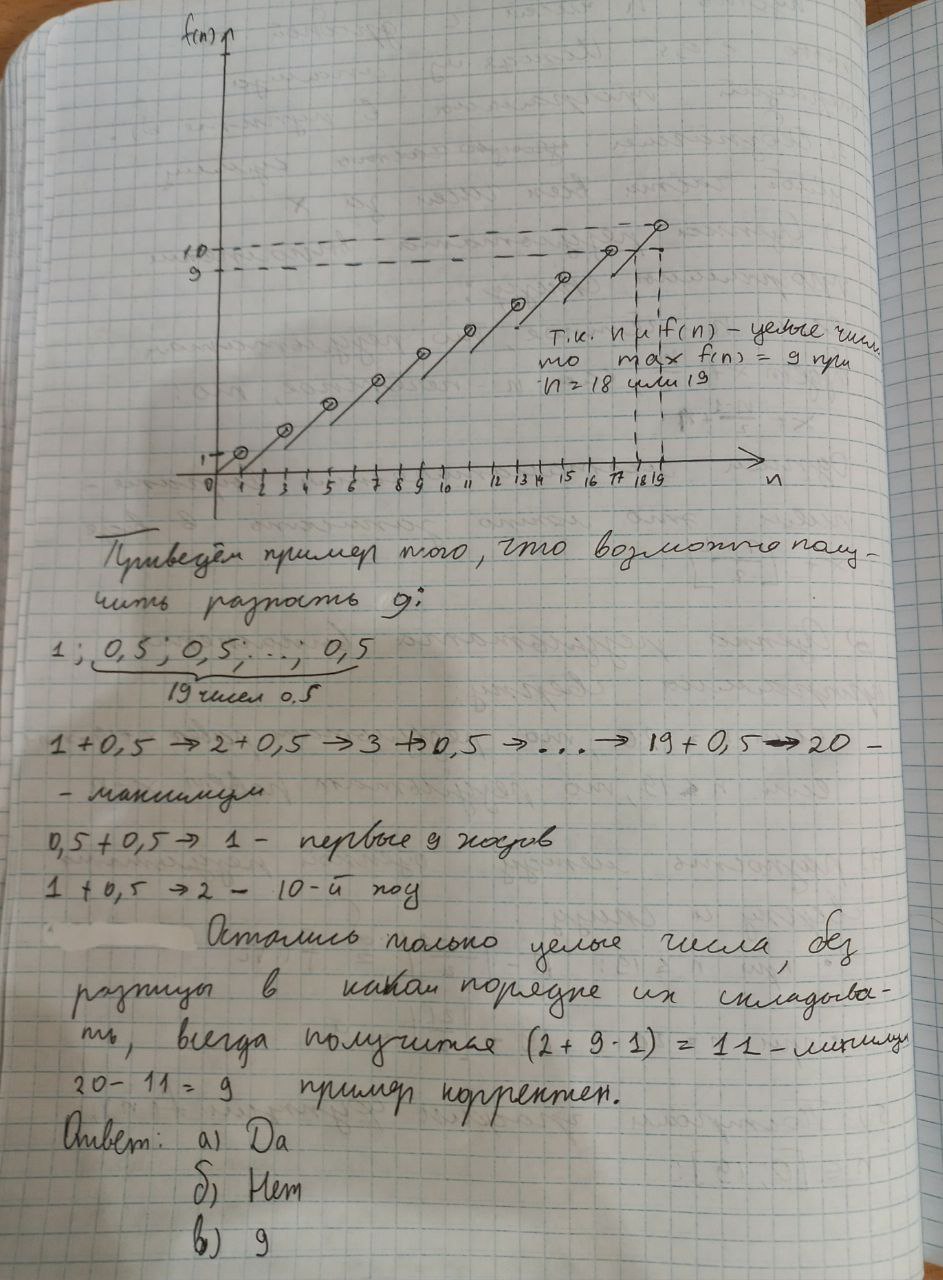 f(n)
10
9
1
0 1 2 3 4 5 6 7 8 9 10 11 12 13 14 15 16 17 18 19
n
т.к. n и f(n) – целые числ.
то max f(n) = 9 при
n = 18 или 19
Приведём пример того, что возможно полу-
чить разность 9:
1; 0,5; 0,5; ...; 0,5
19 чисел 0,5
1 + 0,5 → 2 + 0,5 → 3 + 0,5 → ... → 19 + 0,5 → 20 –
– максимум
0,5 + 0,5 → 1 – первые 9 ходов
1 + 0,5 → 2 – 10-й ход
Остались только целые числа, без
разницы в каком порядке их складыва-
ть, всегда получится (2 + 9 · 1) = 11 – минимум
20 – 11 = 9 пример корректен.
Ответ: а) Да
б) Нет
в) 9